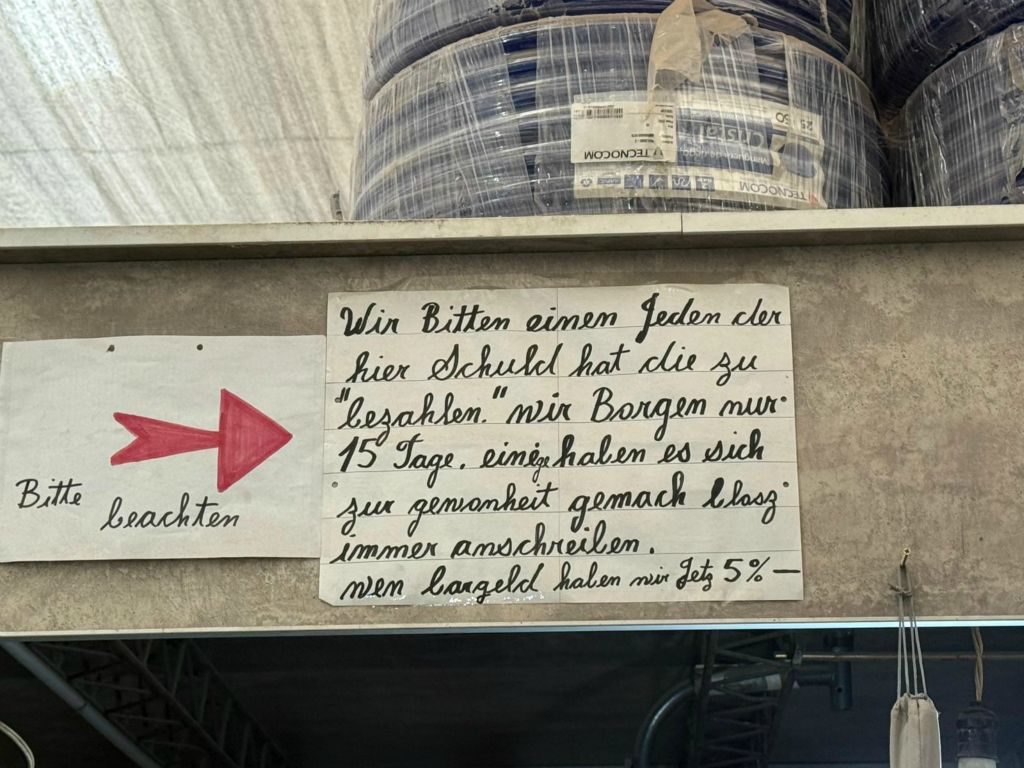 TECNOCOM
TECNOCOM
Wir Bitten einen Jeden der
hier Schuld hat die zu
"bezahlen." wir Borgen nur
15 Tage. einige haben es sich
zur gewonheit gemach blosz
immer anschreiben.
wen bargeld haben wir Jetz 5% —
Bitte
beachten